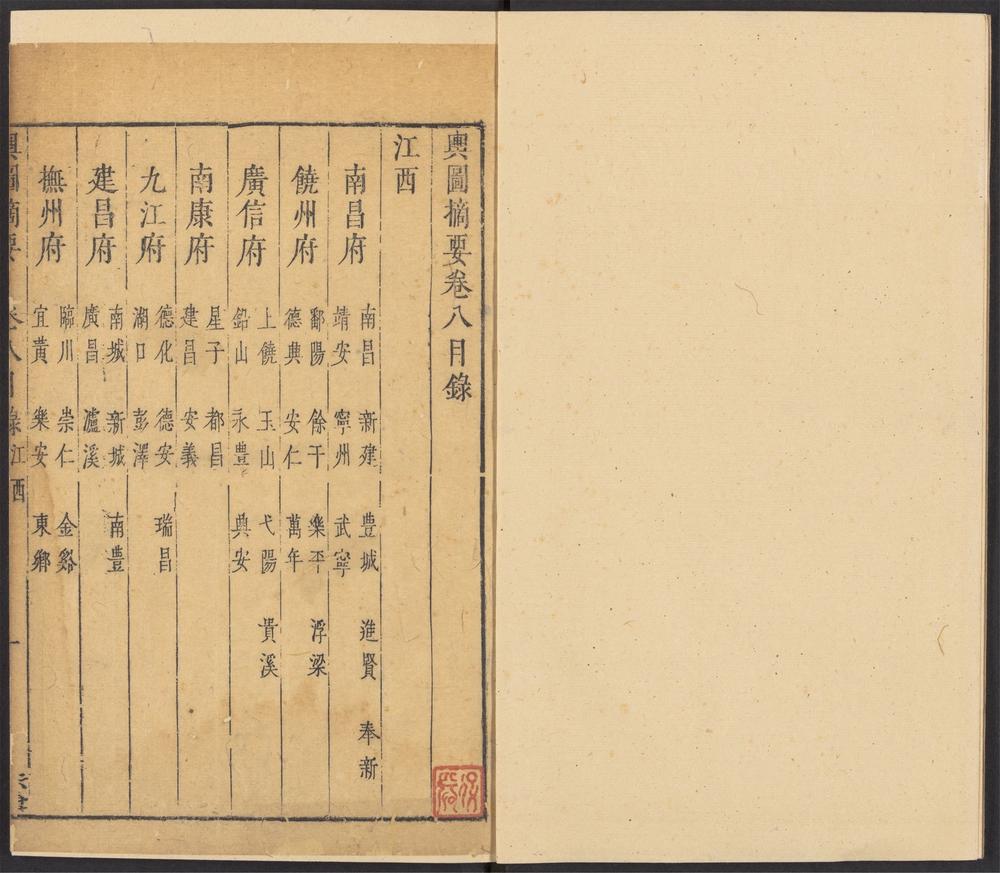 輿圖摘要卷八目錄
江西
南昌府
南昌 新建 豊城 進賢 奉新
靖安 寧州 武寧
饒州府
鄱陽 餘干 樂平 浮梁
德興 安仁 萬年
廣信府
上饒 玉山 弋陽 貴溪
鉛山 永豊 興安
南康府
星子 都昌
建昌 安義
九江府
德化 德安 瑞昌
湖口 彭澤
建昌府
南城 新城 南豊
廣昌 瀘溪
撫州府
臨川 崇仁 金谿
宜黃 樂安 東鄉
輿圖摘要 卷八目錄 江西 一